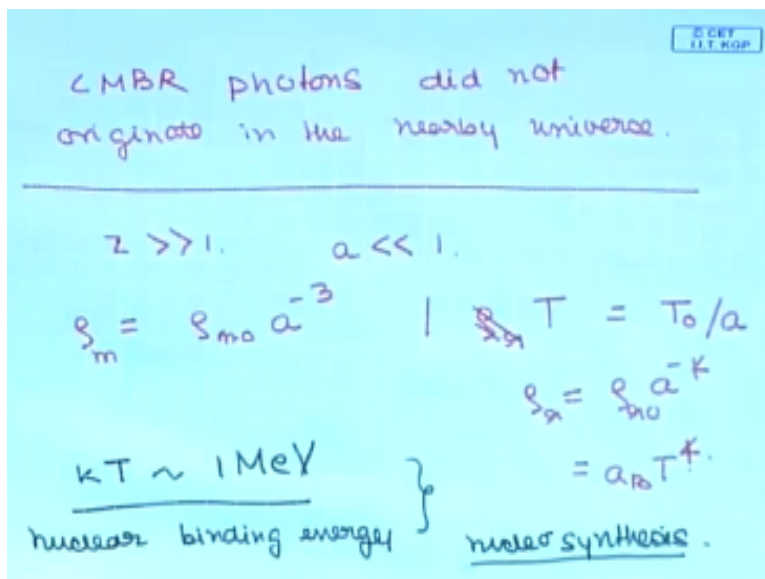 © CET
I.I.T. KGP
CMBR photons did not
originate in the nearby universe.
z >> 1. a << 1.
ρm = ρmo a^-3 | T = To/a
ρr = ρro a^-4
kT ~ 1 MeV } = aB T^4.
nuclear binding energy nucleosynthesis.